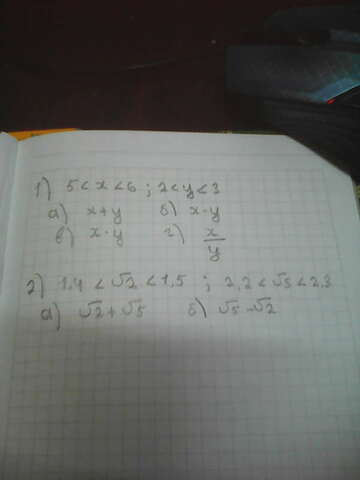 1) 5 < x < 6 ; 2 < y < 3
а) x+y б) x-y
в) x · y г) x/y
2) 1,4 < √2 < 1,5 ; 2,2 < √5 < 2,3
а) √2 + √5 б) √5 - √2